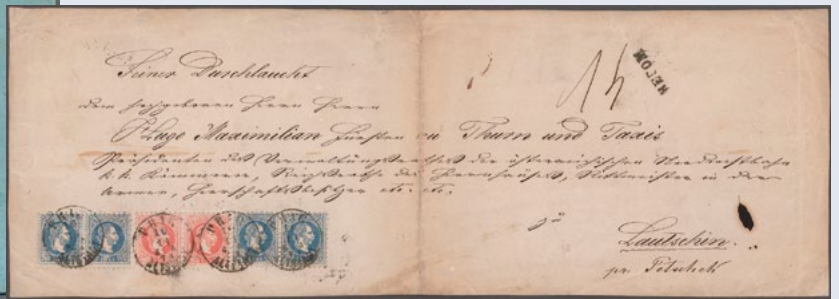 Seiner Durchlaucht
dem hochgeborenen Herrn Herrn
Hugo Maximilian Fürsten zu Thurn und Taxis
Präsidenten des Verwaltungsrathes der österreichischen Nordwestbahn
k. k. Kämmerer, Reichsrathe des Herrenhauses, Rittmeister in der
Armee, Herrschaftsbesitzer etc. etc.
zu
Lautschin.
pr Petschek
RECOM